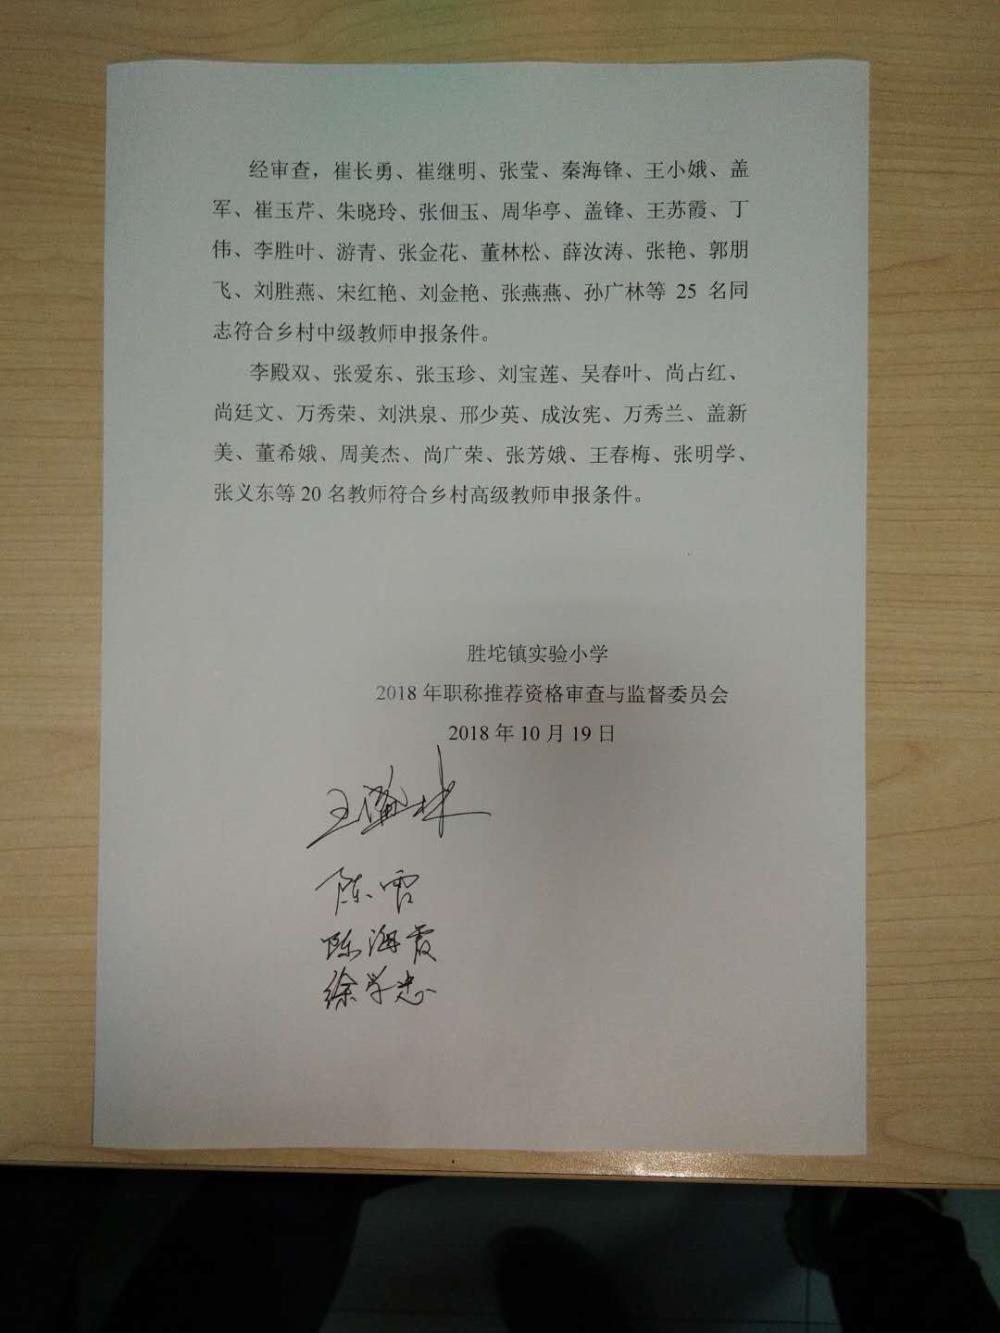 经审查，崔长勇、崔继明、张莹、秦海锋、王小娥、盖
军、崔玉芹、朱晓玲、张佃玉、周华亭、盖锋、王苏霞、丁
伟、李胜叶、游青、张金花、董林松、薛汝涛、张艳、郭朋
飞、刘胜燕、宋红艳、刘金艳、张燕燕、孙广林等 25 名同
志符合乡村中级教师申报条件。
李殿双、张爱东、张玉珍、刘宝莲、吴春叶、尚占红、
尚廷文、万秀荣、刘洪泉、邢少英、成汝宪、万秀兰、盖新
美、董希娥、周美杰、尚广荣、张芳娥、王春梅、张明学、
张义东等 20 名教师符合乡村高级教师申报条件。
胜坨镇实验小学
2018 年职称推荐资格审查与监督委员会
2018 年 10 月 19 日
王林
陈雪
陈海霞
徐学忠